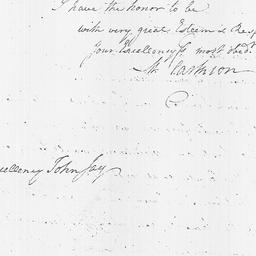 I have the honor to be
with very great Esteem & Resp
Your Excellency's most obedt
W.
cellency John Jay